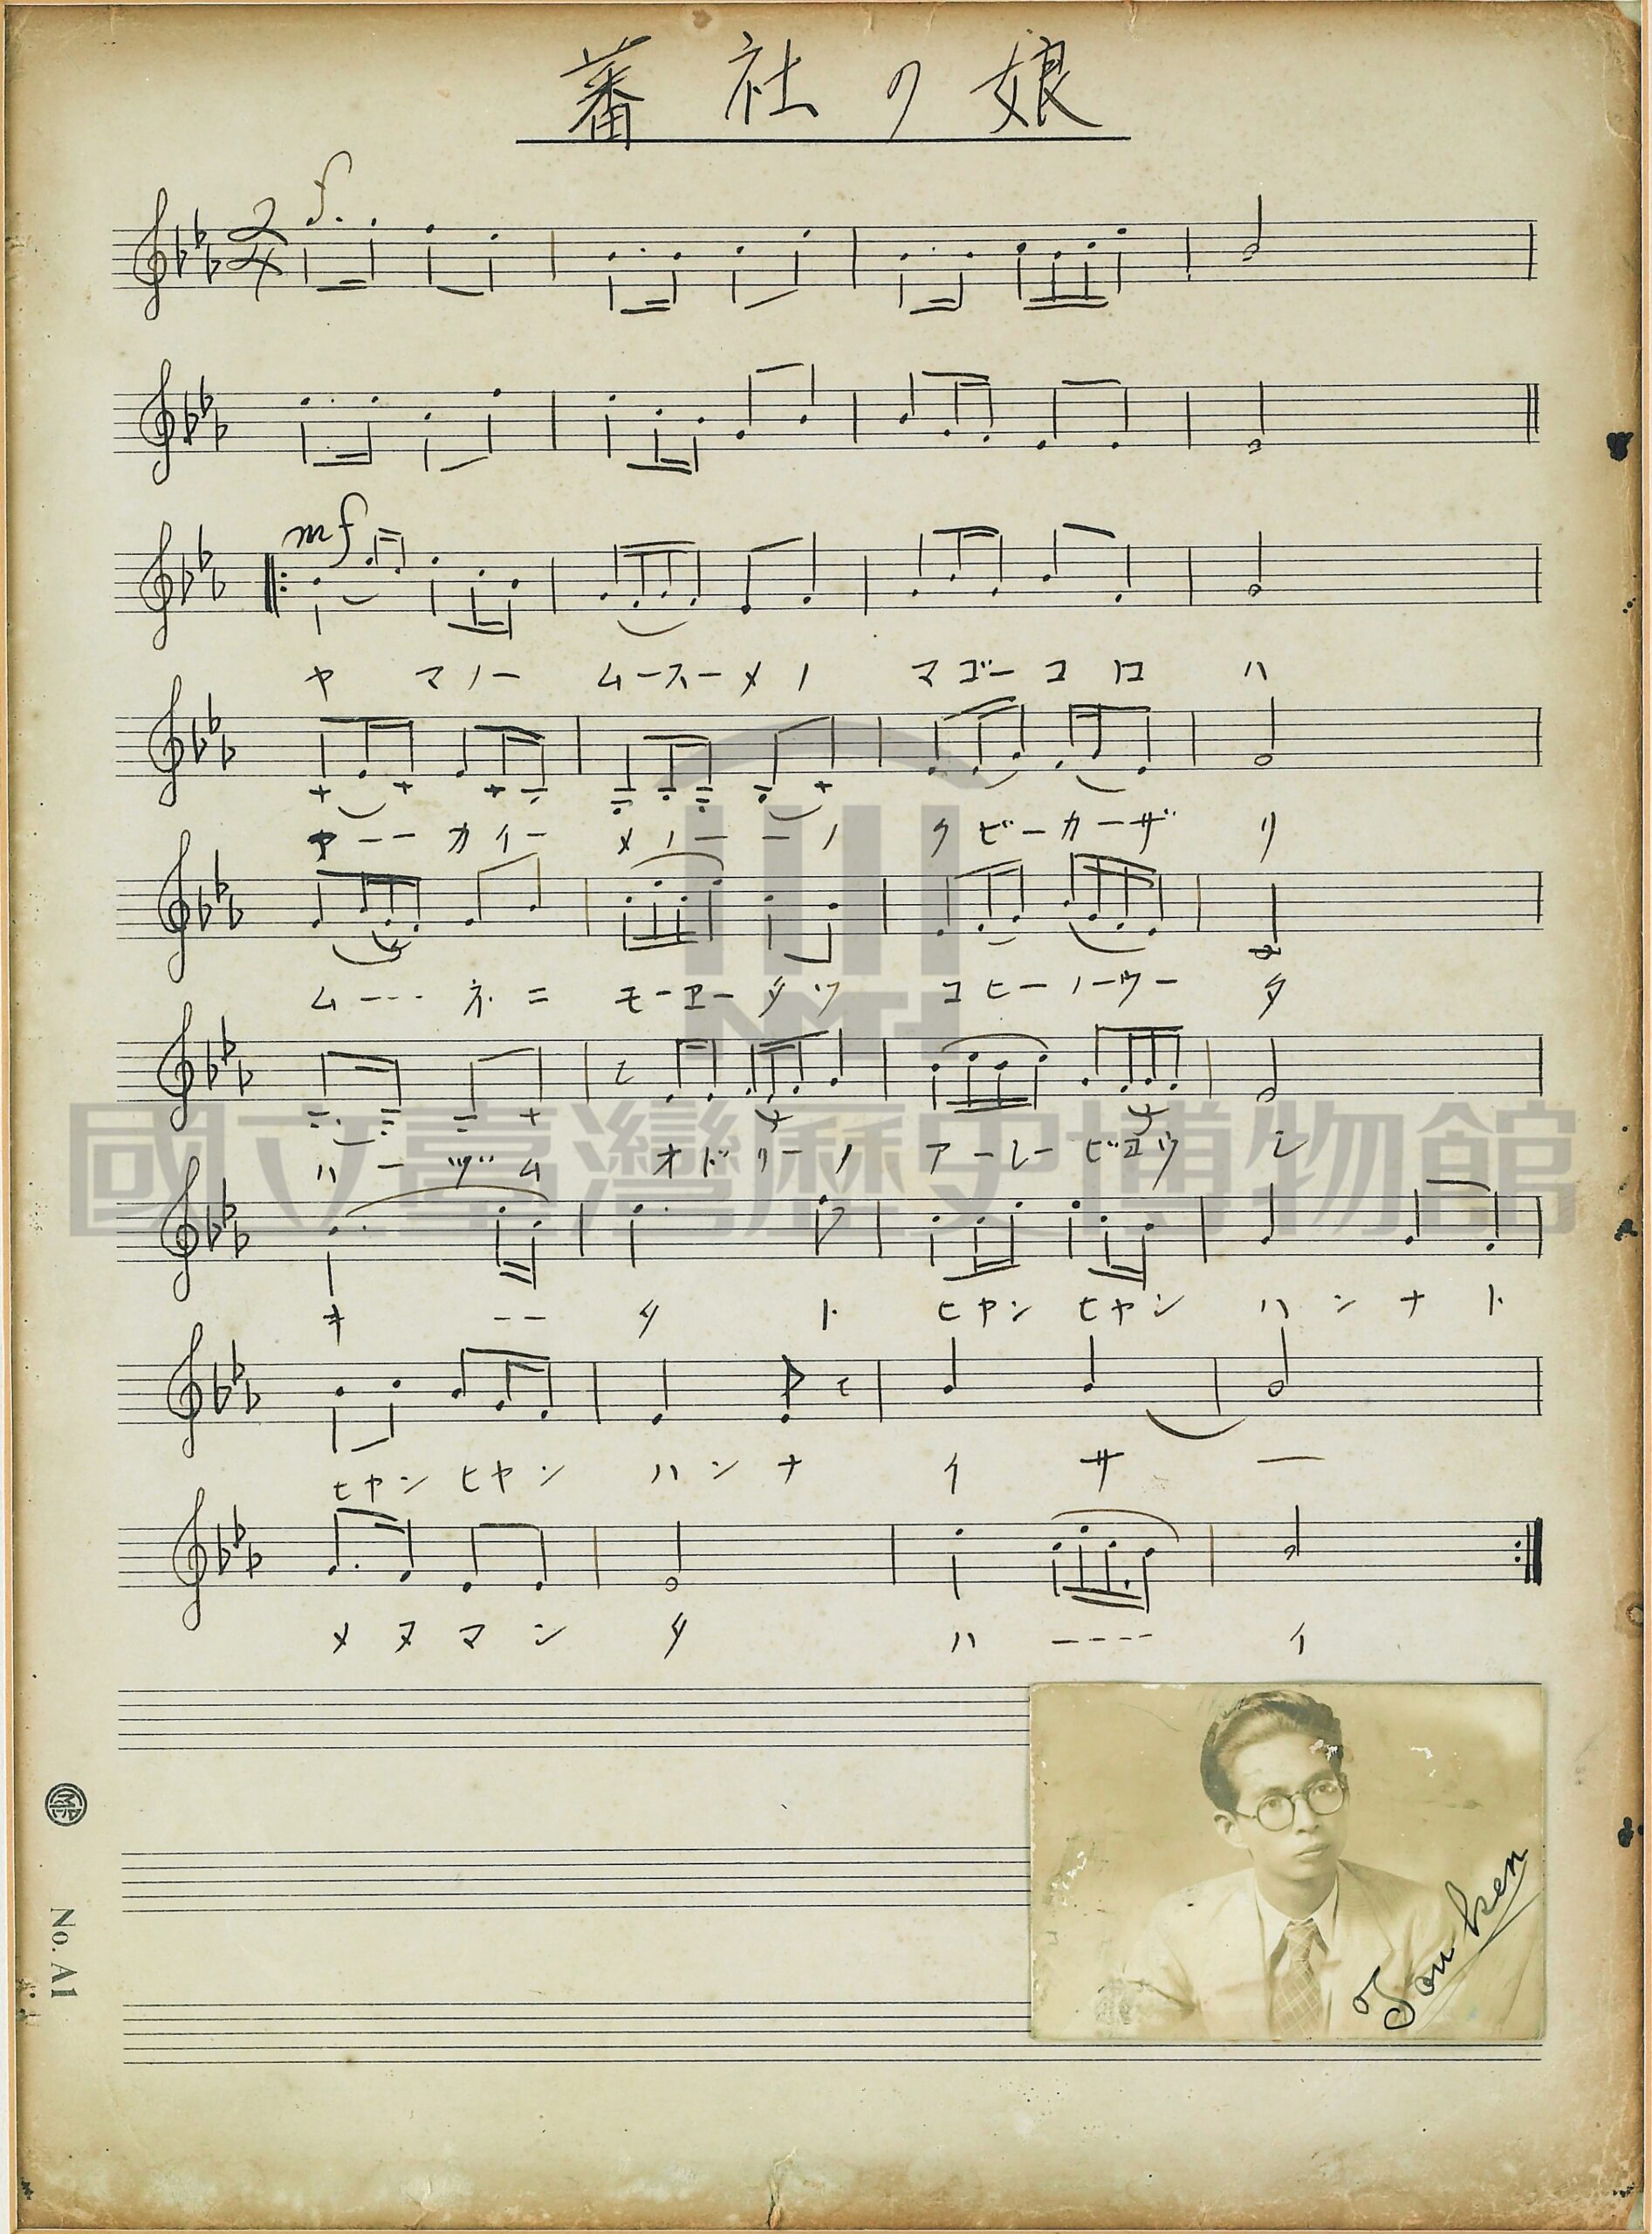 蕃社ノ娘
f.
2/4
mf
ヤ マノー ムースーメノ マゴーコロ ハ
アーー カイー メノーーノ クビーカーザ リ
ム--- ネニ モーエータツ コヒーノーウー タ
ハーヅム オドリーノ アーレービヨウ シ
キ -- タ ト ヒヤン ヒヤン ハンナト
ヒヤン ヒヤン ハンナ イ サ ー
メヌマン タ ハ ---- イ
國立臺灣歷史博物館
NMTH
Ton ken
No. A1